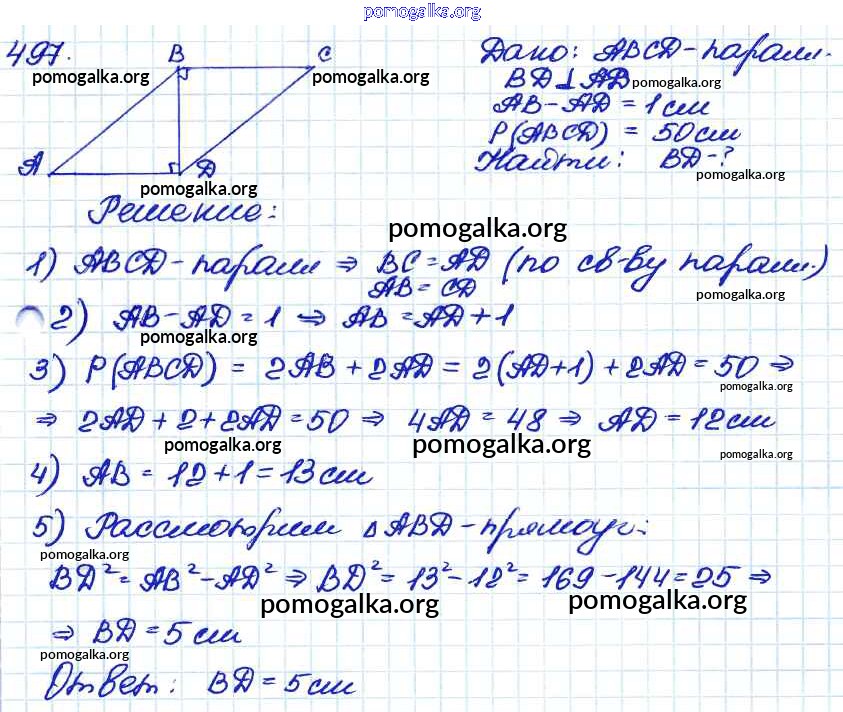 pomogalka.org
497. B C Дано: ABCD-паралл.
pomogalka.org pomogalka.org BD⊥AD pomogalka.org
AB-AD=1см
P(ABCD) = 50см
A D Найти: BD-?
pomogalka.org pomogalka.org
Решение:
pomogalka.org
1) ABCD-паралл ⇒ BC=AD (по св-ву паралл.)
AB=CD pomogalka.org
2) AB-AD=1 ⇒ AB=AD+1
pomogalka.org
3) P(ABCD) = 2AB+2AD=2(AD+1)+2AD=50 ⇒
pomogalka.org
⇒ 2AD+2+2AD=50 ⇒ 4AD=48 ⇒ AD=12см
pomogalka.org pomogalka.org pomogalka.org
4) AB=12+1=13см
5) Рассмотрим ΔABD-прямоуг.:
pomogalka.org
BD²=AB²-AD² ⇒ BD²=13²-12²=169-144=25 ⇒
pomogalka.org pomogalka.org
⇒ BD=5см
pomogalka.org
Ответ: BD=5см